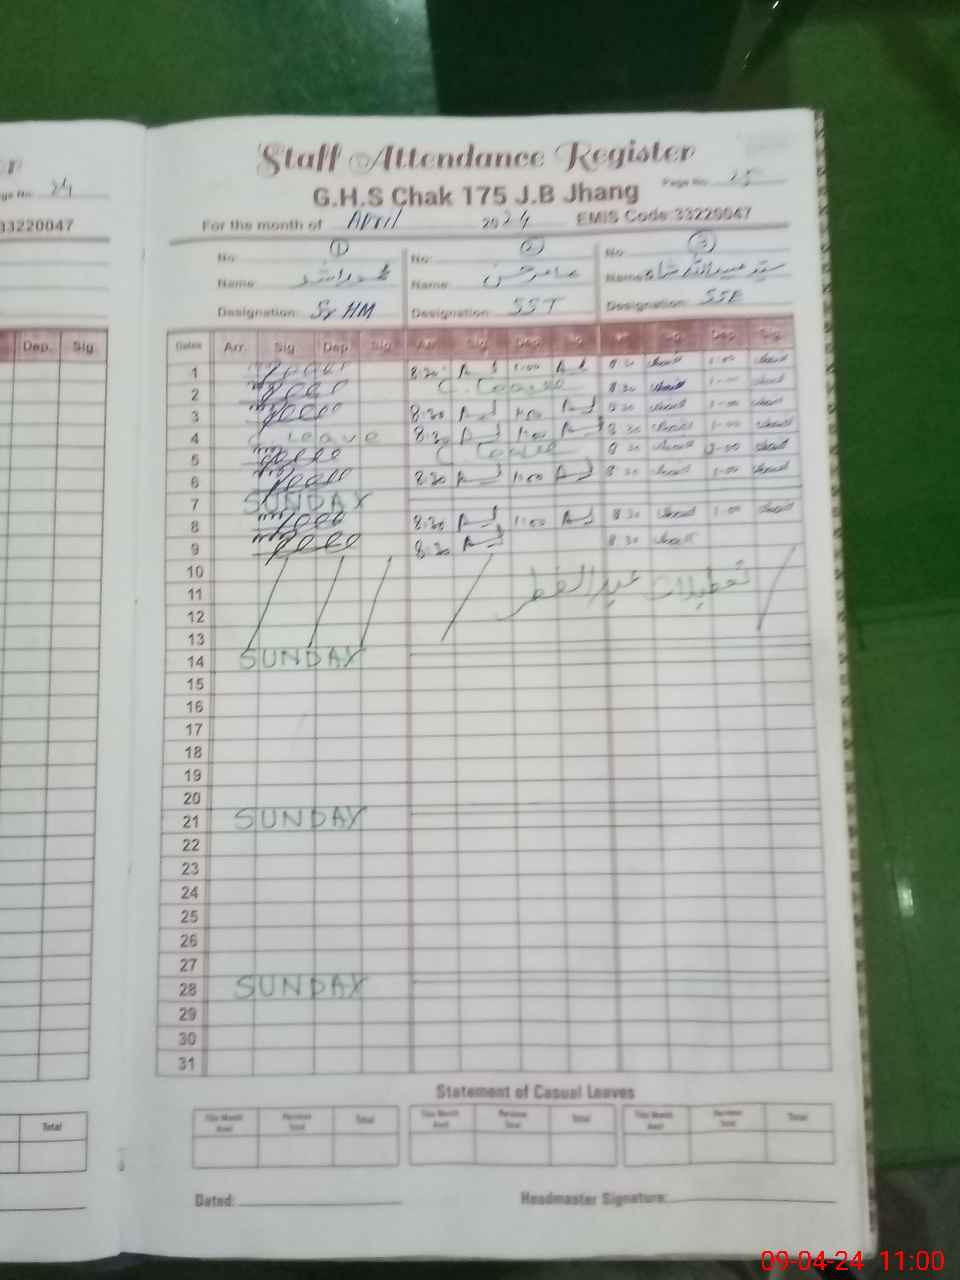 Page No. 24
33220047
Dep. Sig
Total
Staff Attendance Register
Page No. 25
G.H.S Chak 175 J.B Jhang
For the month of April 2024 EMIS Code:33220047
No. 1 No. 2 No. 3
Name: محمد راشد Name: عامر حسن Name: سید عبیداللہ شاہ
Designation: Sr HM Designation: SST Designation: SSE
Dates Arr. Sig Dep. Sig Arr. Sig Dep. Sig Arr. Sig Dep. Sig
1 8:30 1:00 8:30 1:00
2 C. Leave 8:30 1:00
3 8:30 1:00 8:30 1:00
4 C. Leave 8:30 1:00 8:30 1:00
5 C. Leave 8:30
6 8:30 1:00 8:30 1:00
7 SUNDAY
8 8:30 1:00 8:30 1:00
9 8:30 8:30
10
11 تعطیلات عید الفطر
12
13
14 SUNDAY
15
16
17
18
19
20
21 SUNDAY
22
23
24
25
26
27
28 SUNDAY
29
30
31
Statement of Casual Leaves
This Month Avail Previous Total Total This Month Avail Previous Total Total This Month Avail Previous Total Total
Dated: Headmaster Signature:
09-04-24 11:00